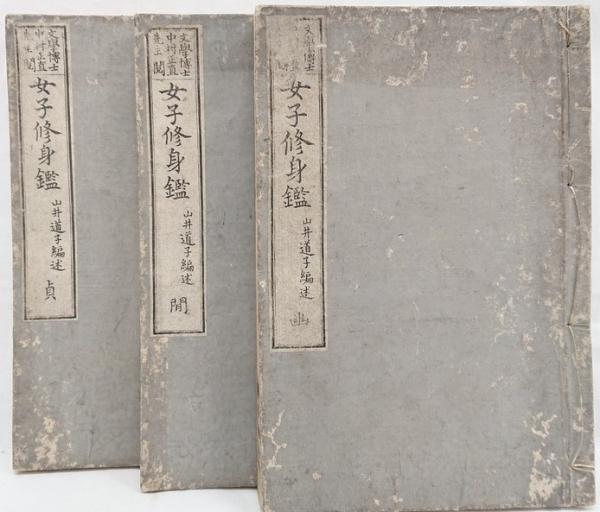 文學博士
女子修身鑑
山井道子編述
幽
文學博士
中村正直
先生閲
女子修身鑑
山井道子編述
閒
文學博士
中村正直
先生閲
女子修身鑑
山井道子編述
貞